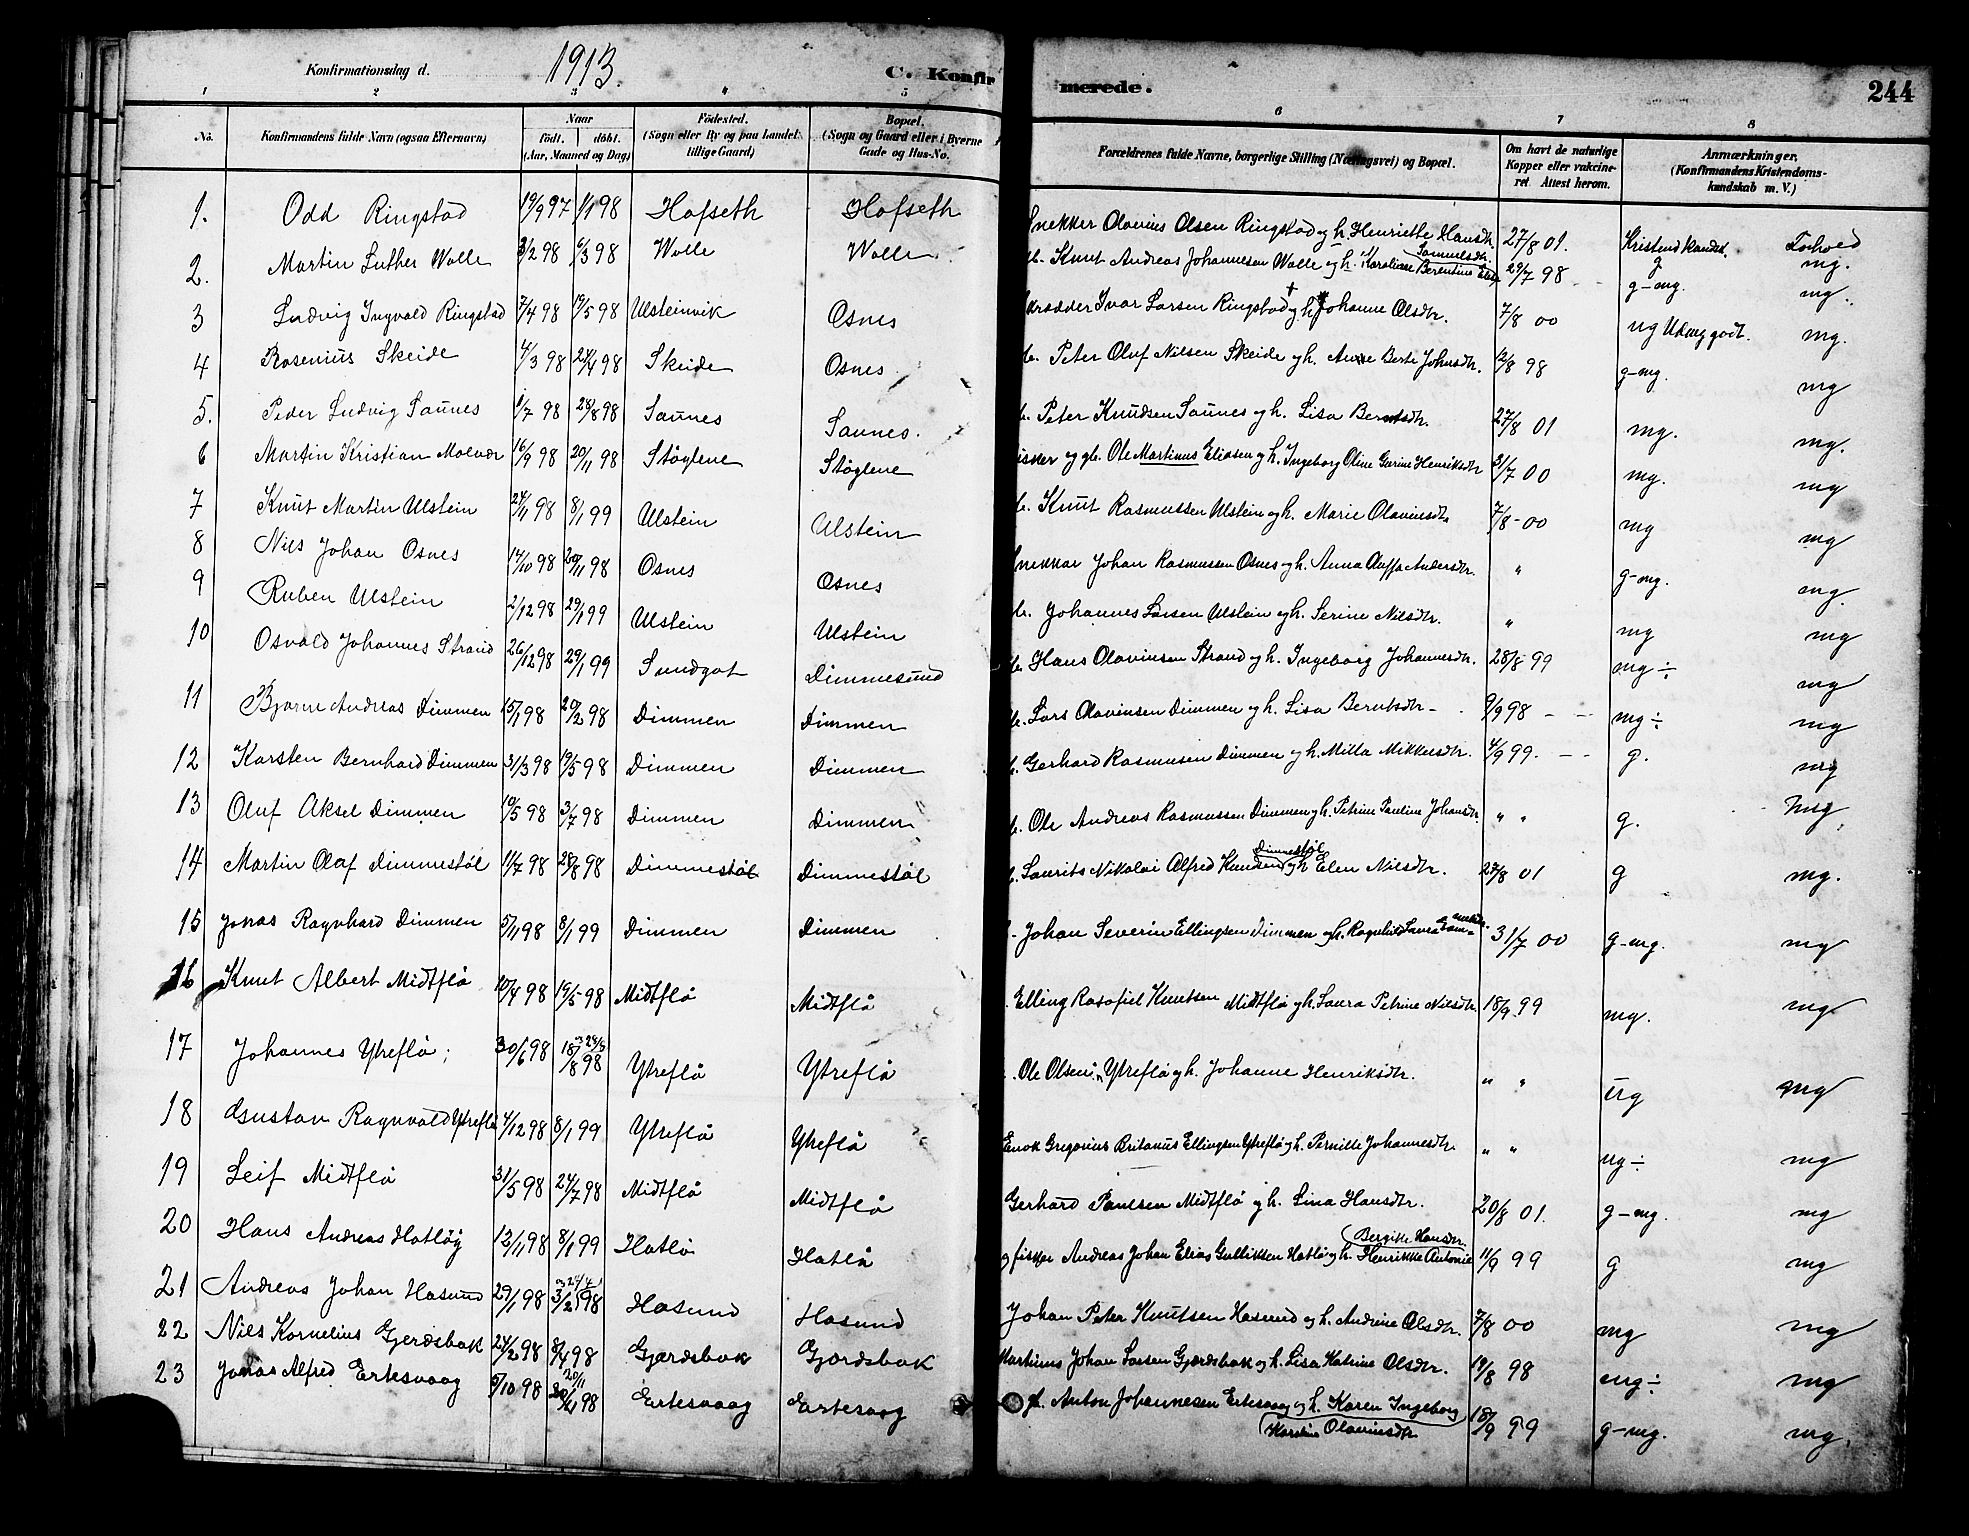 Konfirmationsdag d. 1913. C. Konfirmerede. 244
1 2 3 4 5 6 7 8
No. Konfirmandens fulde Navn (ogsaa Efternavn) Naar født. døbt. (Aar, Maaned og Dag) Fødested. (Sogn eller By og paa Landet tillige Gaard) Bopæl. (Sogn og Gaard eller i Byerne Gade og Hus-No. Forældrenes fulde Navne, borgerlige Stilling (Næringsvei) og Bopæl. Om havt de naturlige Kopper eller vakcineret Attest herom. Anmærkninger. (Konfirmandens Kristendomskundskab m. V.)
1. Odd Ringstad 19/9 97 1/1 98 Hofseth Hofseth Snekker Olavius Olsen Ringstad og h. Henriette Hansdtr. 27/8 01. Kristendkundsk. g Forhold mg.
2. Martin Luther Wolle 3/2 98 6/3 98 Wolle Wolle Knut Andreas Johannesen Wolle og h. Karoline Berentine Samuelsdtr. 29/7 98 g-mg. mg.
3 Ludvig Ingvald Ringstad 7/4 98 19/5 98 Ulsteinvik Osnes Skrædder Ivar Larsen Ringstad og h. Johanne Olsdtr. 7/8 00 ug Udmg godt. mg.
4 Rosenius Skeide 4/3 98 24/4 98 Skeide Osnes. Peter Oluf Nilsen Skeide og h. Anne Berte Johnsdtr. 12/8 98 g-mg. mg
5. Peder Ludvig Saunes 1/7 98 28/8 98 Saunes Saunes. Peter Knudsen Saunes og h. Lisa Berntsdtr. 27/8 01 mg. mg.
6 Martin Kristian Molvær 16/9 98 20/11 98 Støylene Støylene fisker og gb. Ole Martinus Eliasen og h. Ingeborg Oline Gurine Henriksdtr 31/7 00 mg. mg
7 Knut Martin Ulstein 24/11 98 8/1 99 Ulstein Ulstein Knut Rasmussen Ulstein og h. Marie Olavinsdtr 7/8-00 mg mg
8 Nils Johan Osnes 14/10 98 20/11 98 Osnes Osnes Snekker Johan Rasmussen Osnes og h. Anna Andersdtr. " g-mg. mg.
9 Ruben Ulstein 2/12 98 29/1 99 Ulstein Ulstein Johannes Larsen Ulstein og h. Serine Nilsdtr. " mg mg
10 Osvald Johannes Strand 26/12 98 29/1 99 Sundgot Dimmesund Hans Olavinsen Strand og h. Ingeborg Johannesdtr. 28/8 99 mg÷ mg
11 Bjarne Andreas Dimmen 15/1 98 20/2 98 Dimmen Dimmen Lars Olavinsen Dimmen og h. Lisa Berntsdtr - 9/9 98 - - mg÷ mg
12 Karsten Bernhard Dimmen 31/3 98 19/5 98 Dimmen Dimmen Gerhard Rasmussen Dimmen og h. Milla Mikkelsdtr. 4/9 99. - - g. mg
13 Oluf Aksel Dimmen 10/5 98 3/7 98 Dimmen Dimmen Ole Andreas Rasmussen Dimmen og h. Petrine Pauline Johansdtr. " " g. mg.
14 Martin Olaf Dimmestøl 11/7 98 28/8 98 Dimmestøl Dimmestøl Laurits Nikolai Alfred Knudsen Dimmestøl og h Elen Nilsdtr. 27/8 01 g mg.
15 Jonas Ragnhard Dimmen 5/11 98 8/1 99 Dimmen Dimmen Johan Severin Ellingsen Dimmen og h. Laura 31/7 00 g-mg. mg
16 Knut Albert Midtflø 10/4 98 19/5 98 Midtflø Midtflø Elling Rasofiel Knutsen Midtflø og h. Laura Petrine Nilsdtr. 18/9 99 mg. mg
17 Johannes Ytreflø; 30/6 98 18/8 98 Ytreflø Ytreflø Ole Olsen Ytreflø og h. Johanne Henriksdtr. " " ug mg
18 Gustav Ragnvald Ytreflø 4/12 98 8/1 99 Ytreflø Ytreflø Enok Gregorius Britanus Ellingsen Ytreflø og h. Pernille Johannesdtr. " " ug÷ mg
19 Leif Midtflø 31/5 98 24/7 98 Midtflø Midtflø Gerhard Paulsen Midtflø og h. Lina Hansdtr. 20/8 01. g-mg. mg
20 Hans Andreas Hatløy 12/11 98 8/1 99 Hatlø Hatlø og fisker Andreas Johan Elias Gullikken Hatlø og h. Henrikke Antonie Bergitte Hansdtr. 11/9 99 g mg
21 Andreas Johan Hasund 29/1 98 3/2 98 Hasund Hasund Johan Peter Knutsen Hasund og h. Andrine Olsdtr. 7/8 00 mg mg
22 Nils Kornelius Gjerdsbak 24/2 98 8/4 98 Gjærdsbak Gjærdsbak Martinus Johan Larsen Gjærdsbak og h. Lisa Katrine Olsdtr. 19/8 98 mg÷ mg
23 Jonas Alfred Ertesvaag 5/10 98 20/11 98 Ertesvaag Ertesvaag Anton Johannesen Ertesvaag og h. Karen Ingeborg Olavinsdtr 18/9 99 g-mg. mg.